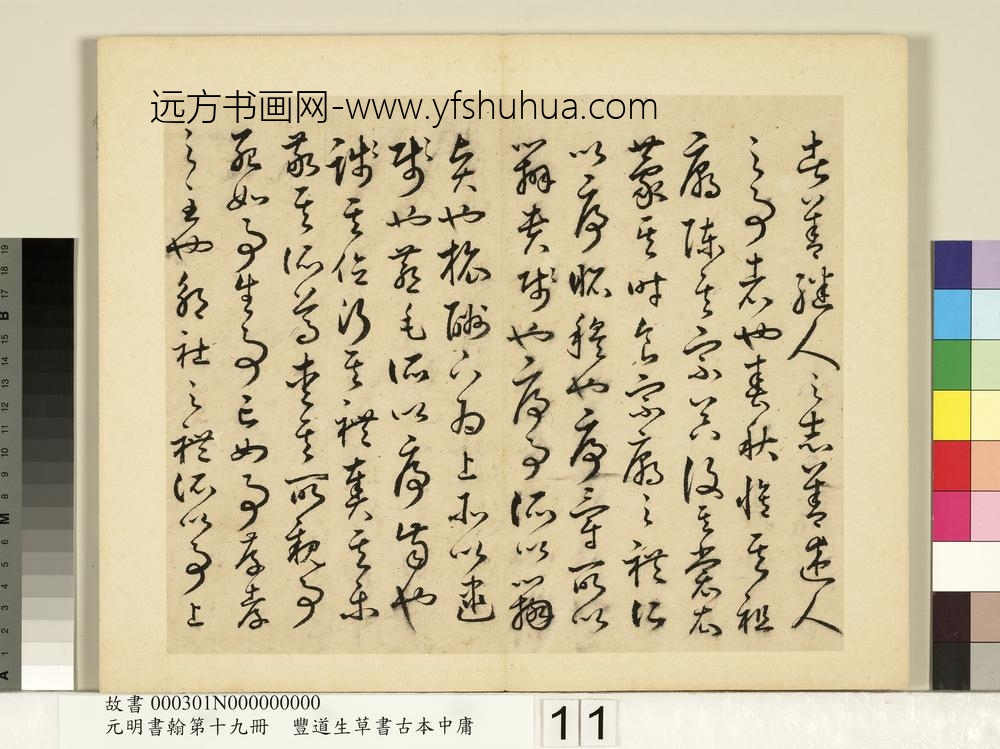 远方书画网-www.yfshuhua.com
者善繼人之志善述人
之事者也春秋脩其祖
廟陳其宗器設其裳衣
薦其時食宗廟之禮所
以序昭穆也序爵所以
辨貴賤也序事所以辨
賢也旅酬下為上所以逮
賤也燕毛所以序齒也
踐其位行其禮奏其樂
敬其所尊愛其所親事
死如事生事亡如事存孝
之至也郊社之禮所以事上
故書 000301N000000000
元明書翰第十九冊 豐道生草書古本中庸
11